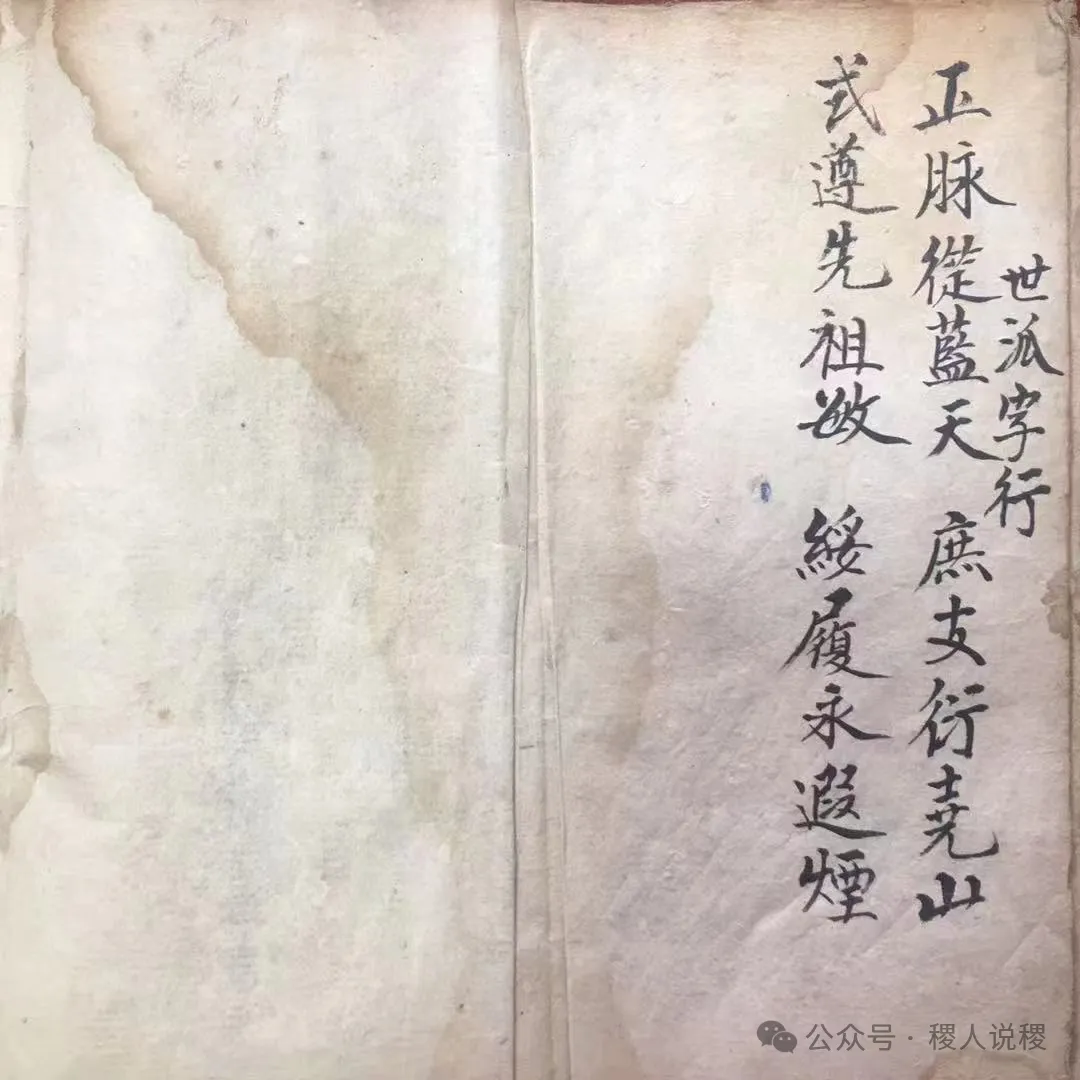 世派字行
正脉從藍天 庶支衍堯山
式遵先祖敏 綏履永遐煙
公众号·稷人说稷